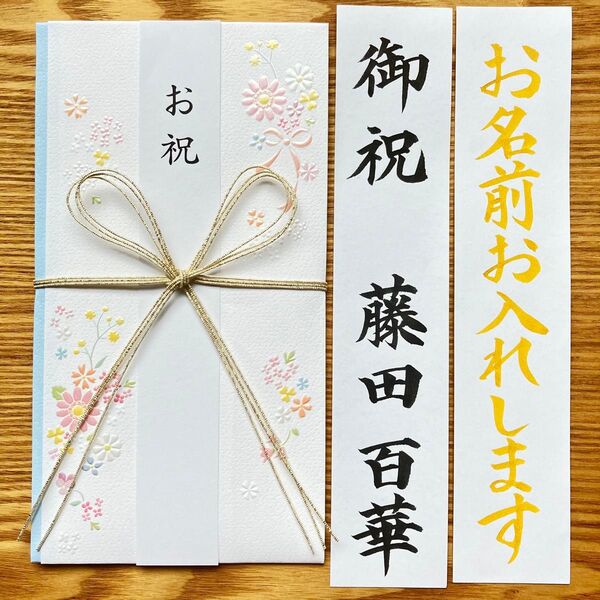 お祝
御祝 藤田百華
お名前お入れします